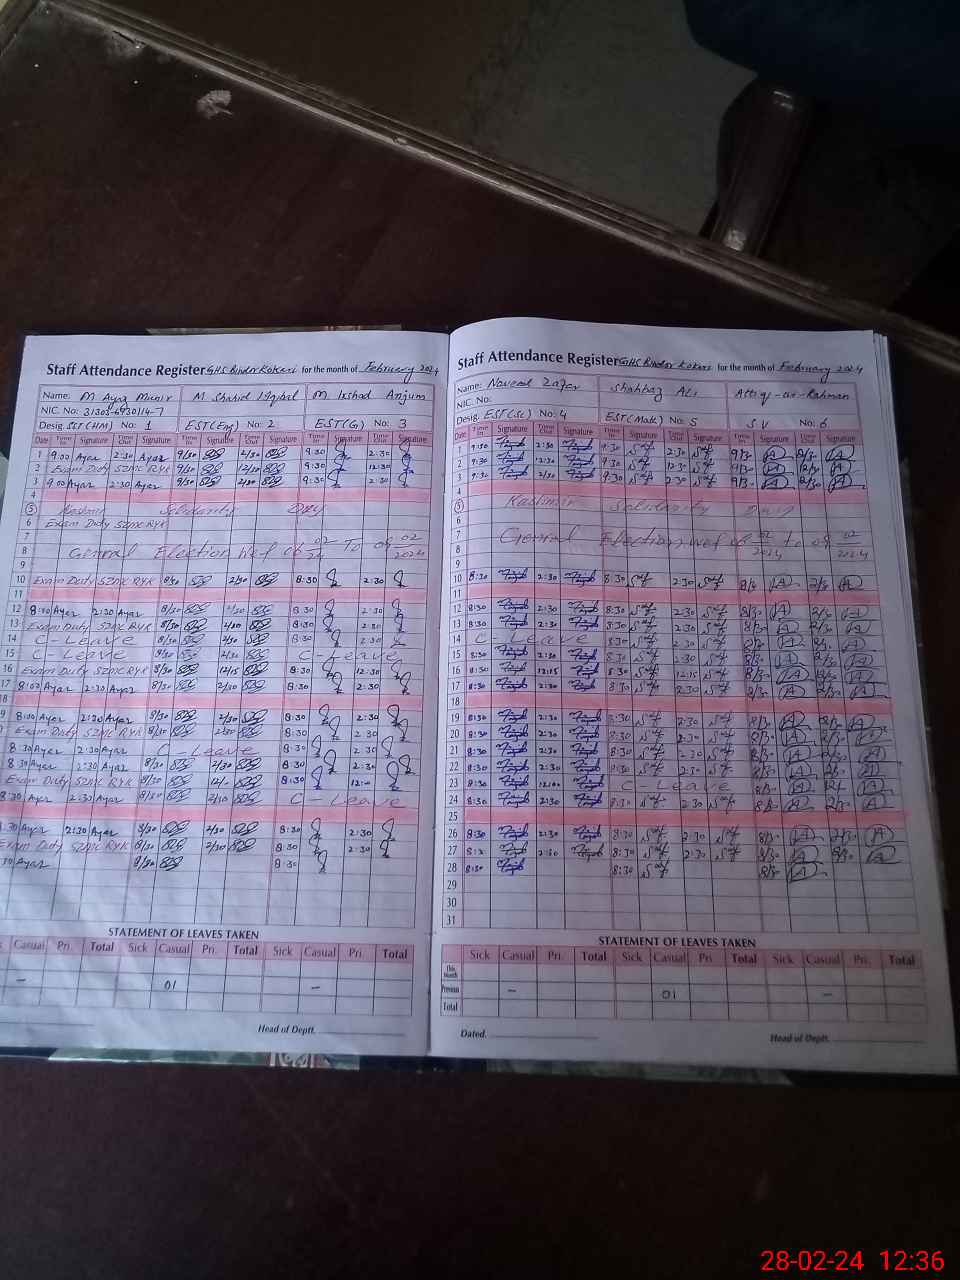 Staff Attendance Register GHS Bindor Kokari for the month of February 2024
Name: M Ayaz Munir M Shahid Iqbal M Irshad Anjum
NIC. No: 31303-6930114-7
Desig. SST (HM) No: 1 EST (Eng) No: 2 EST (G) No: 3
Date Time In Signature Time Out Signature Time In Signature Time Out Signature Time In Signature Time Out Signature
1 9:00 Ayaz 2:30 Ayaz 9/30 2/30 9:30 2:30
2 Exam Duty SZMC RYK 9/30 12/30 9:30 12:30
3 9:00 Ayaz 2:30 Ayaz 9/30 2/30 9:30 2:30
4
5 Kashmir Solidarity Day
6 Exam Duty SZMC RYK
7
8 General Election wef 06 02/24 To 09 02/2024
9
10 Exam Duty SZMC RYK 8/30 2/30 8:30 2:30
11
12 8:30 Ayaz 2:30 Ayaz 8/30 2/30 8:30 2:30
13 Exam Duty SZMC RYK 8/30 2/30 8:30 2:30
14 C-Leave 8/30 2/30 8:30 2:30
15 C-Leave 8/30 2/30 C-Leave
16 Exam Duty SZMC RYK 8/30 12/15 8:30 12:30
17 8:00 Ayaz 2:30 Ayaz 8/30 2/30 8:30 2:30
18
9 8:00 Ayaz 2:30 Ayaz 8/30 2/30 8:30 2:30
Exam Duty SZMC RYK 8/30 2/30 8:30 2:30
8:30 Ayaz 2:30 Ayaz C-Leave 8:30 2:30
8:30 Ayaz 2:30 Ayaz 8/30 2/30 8:30 2:30
Exam Duty SZMC RYK 8/30 12/- 8:30 12:00
8:30 Ayaz 2:30 Ayaz 8/30 2/30 C-Leave
8:30 Ayaz 2:30 Ayaz 8/30 2/30 8:30 2:30
Exam Duty SZMC RYK 8/30 2/30 8:30 2:30
:30 Ayaz 8/30 8:30
STATEMENT OF LEAVES TAKEN
Casual Pri. Total Sick Casual Pri. Total Sick Casual Pri. Total
– 01 –
Head of Deptt.
Staff Attendance Register GHS Bindor Kokari for the month of February 2024
Name: Naveed Zafar Shahbaz Ali Attiq-ur-Rahman
NIC. No:
Desig. EST (Sc) No: 4 EST (Math) No: 5 S.V No: 6
Date Time In Signature Time Out Signature Time In Signature Time Out Signature Time In Signature Time Out Signature
1 9:30 2:30 9:30 2:30 9/30 2/30
2 9:30 12:30 9:30 12:30 9/30 12/30
3 9:30 2:30 9:30 2:30 9/30 2/30
4
5 Kashmir Solidarity Day
6
7
8 General Election wef 06 02/2024 to 09 02/2024
9
10 8:30 2:30 8:30 2:30 8/30 2/30
11
12 8:30 2:30 8:30 2:30 8/30 2/30
13 8:30 2:30 8:30 2:30 8/30 2/30
14 C-Leave 8:30 2:30 8/30 2/30
15 8:30 2:30 8:30 2:30 8/30 2/30
16 8:30 12:15 8:30 12:15 8/30
17 8:30 2:30 8:30 2:30 8/30 2/30
18
19 8:30 2:30 8:30 2:30 8/30 2/30
20 8:30 2:30 8:30 2:30 8/30 2/30
21 8:30 2:30 8:30 2:30 8/30 2/30
22 8:30 2:30 8:30 2:30 8/30 2/30
23 8:30 12:00 C-Leave 8/30 12/
24 8:30 2:30 8:30 2:30 8/30 2/30
25
26 8:30 2:30 8:30 2:30 8/30 2/30
27 8:30 2:30 8:30 2:30 8/30 2/30
28 8:30 8:30 8/30
29
30
31
STATEMENT OF LEAVES TAKEN
Sick Casual Pri. Total Sick Casual Pri Total Sick Casual Pri. Total
This Month
Previous – 01 –
Total
Dated. Head of Deptt.
28-02-24 12:36